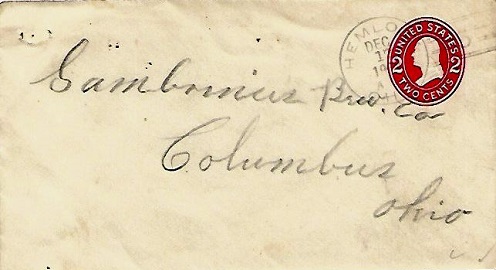 HEMLO
DEC
UNITED STATES
2 2
TWO CENTS
Gambrinius Brew. Co
Columbus
Ohio